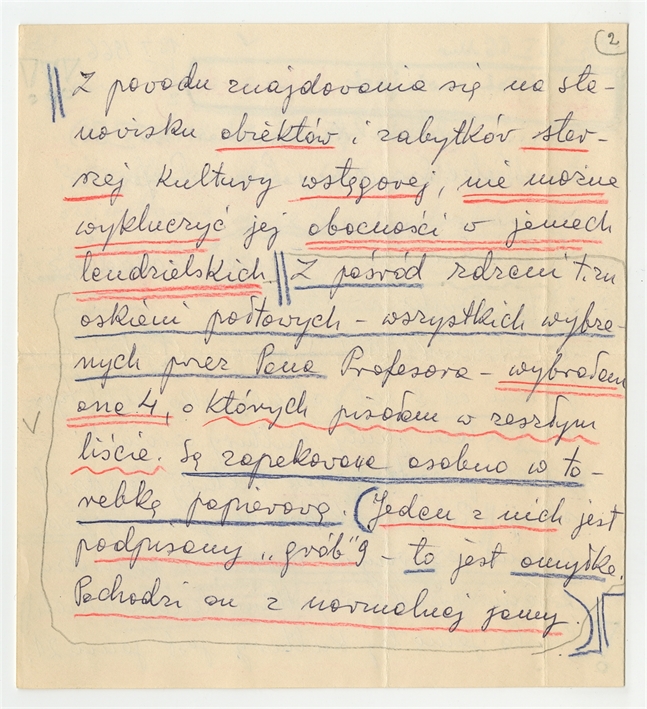 2
Z powodu znajdowania się na sta-
nowisku obiektów i zabytków star-
szej kultury wstęgowej, nie można
wykluczyć jej obecności w jamach
lendzielskich. Z pośród rdzeni t.zn
oskieni płytowych - wszystkich wybra-
nych przez Pana Profesora - wybrałam
one 4, o których pisałam w zeszłym
liście. Są zapakowane osobno w to-
rebkę papierową. (Jeden z nich jest
podpisany „grób" 9 - to jest omyłka.
Pochodzi on z normalnej jamy.)